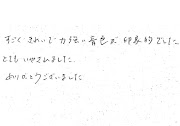 すごくきれいで力強い音色が印象的でした
とてもいやされました
ありがとうございました